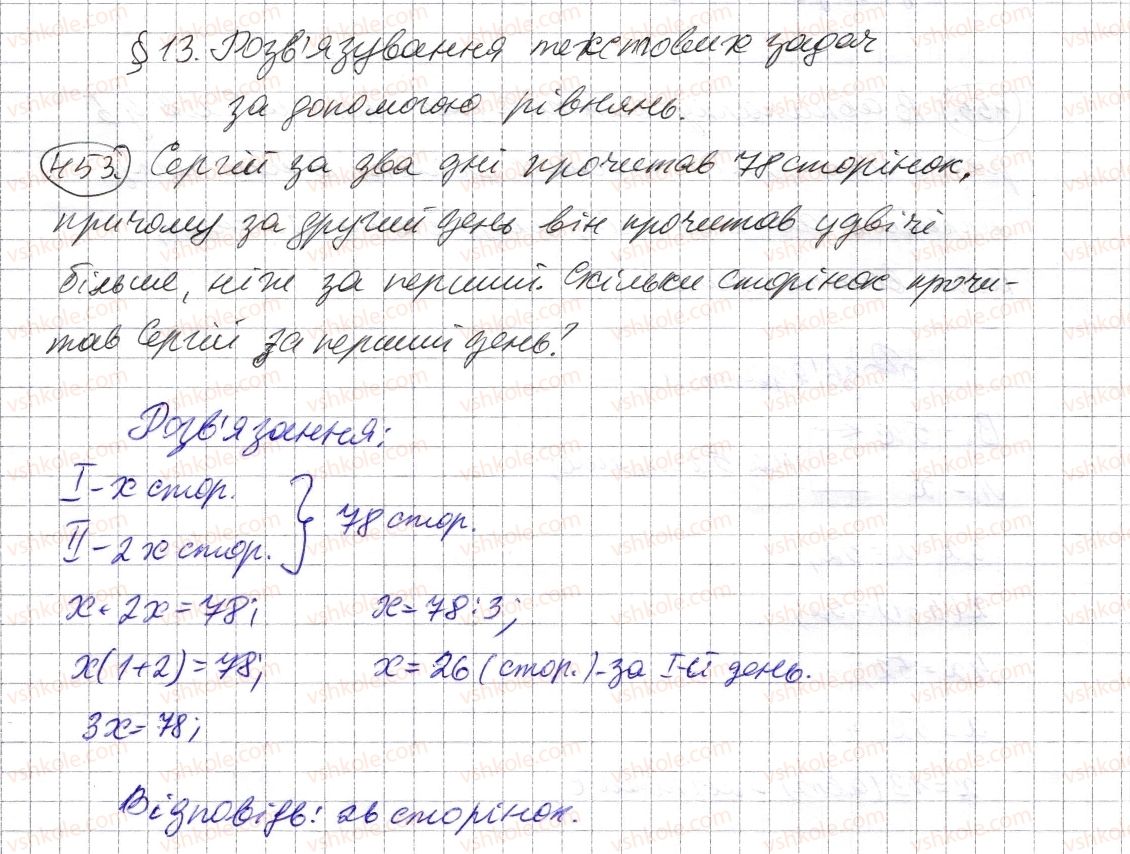 § 13. Розв'язування текстових задач
за допомогою рівнянь.
453. Сергій за два дні прочитав 78 сторінок,
причому за другий день він прочитав удвічі
більше, ніж за перший. Скільки сторінок прочи-
тав Сергій за перший день?
Розв'язання:
I - x стор.
II - 2x стор. } 78 стор.
x + 2x = 78; x = 78 : 3;
x(1+2) = 78; x = 26 (стор.) - за I-й день.
3x = 78;
Відповідь: 26 сторінок.